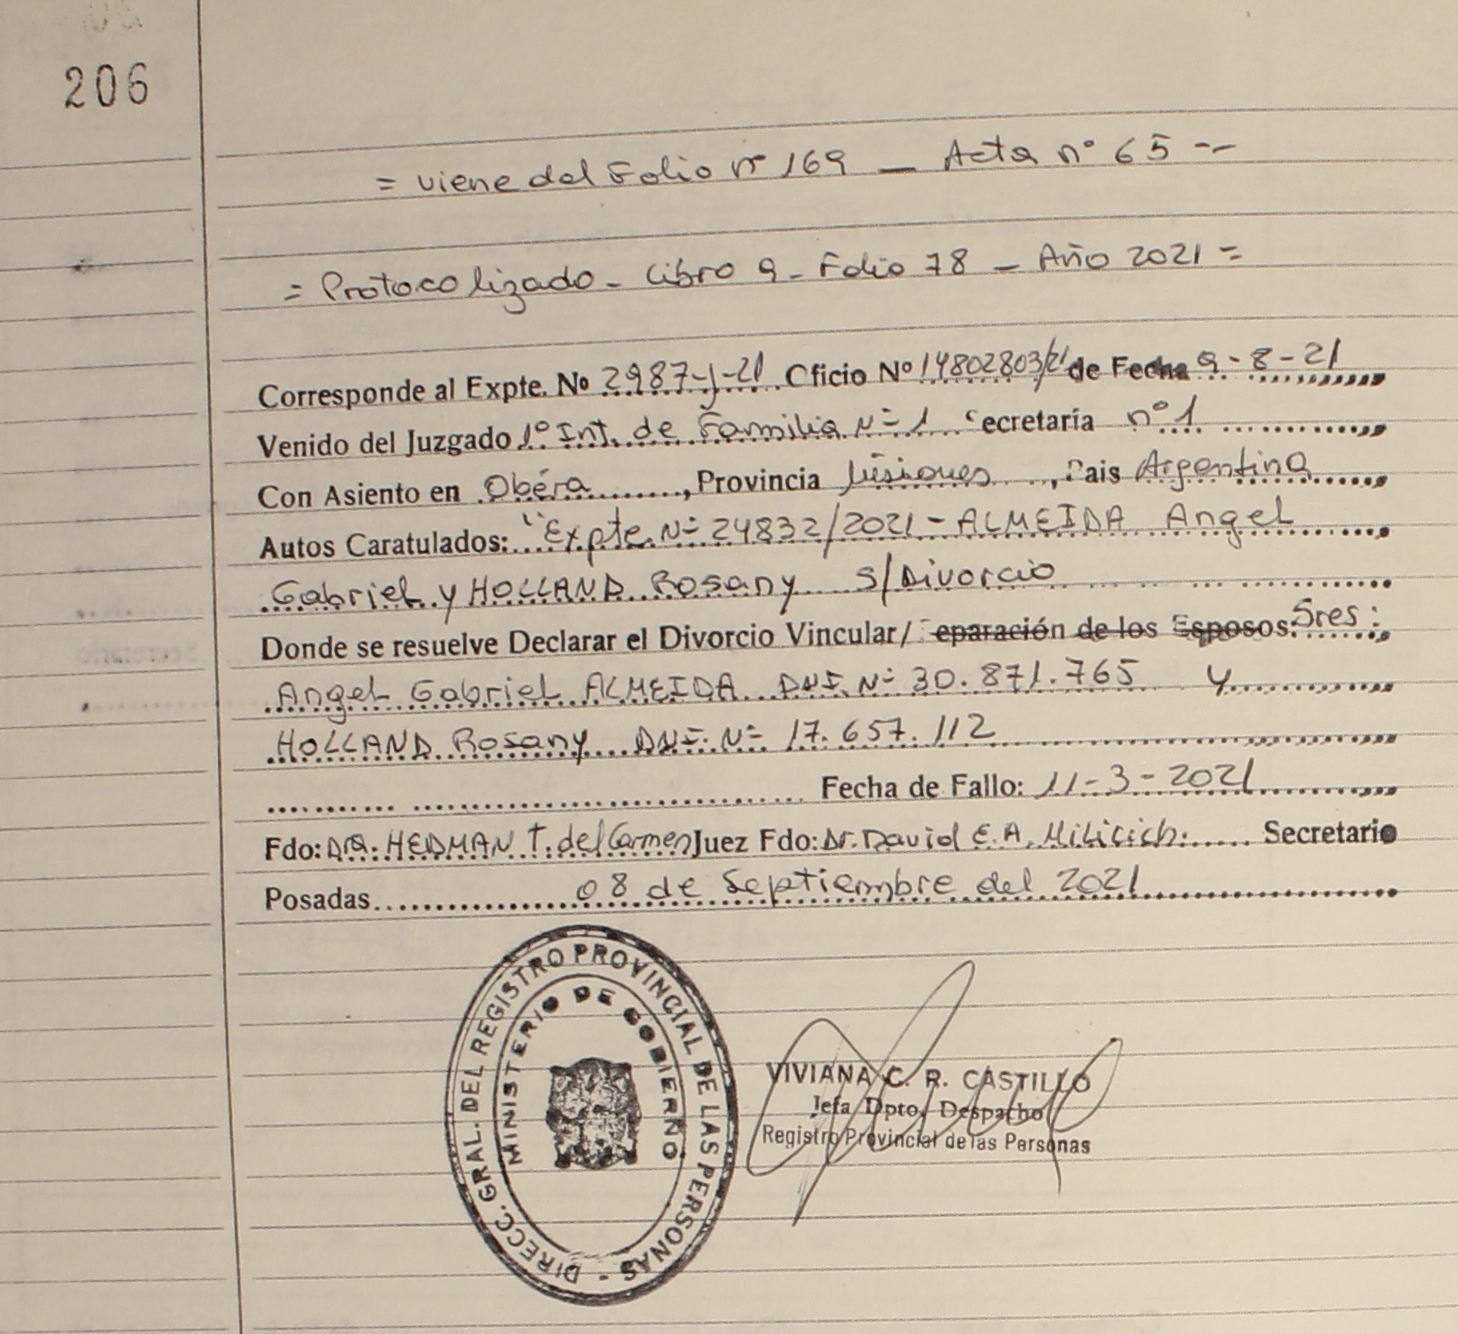 206
= viene del Folio nº 169 — Acta nº 65 --
= Protocolizado - Libro 9 - Folio 78 - Año 2021 =
Corresponde al Expte. No 2987-J-21 Oficio Nº 14802803/21 de Fecha 9-8-21
Venido del Juzgado 1º Int. de Familia Nº 1 Secretaría nº 1
Con Asiento en Obéra, Provincia Misiones, Pais Argentina
Autos Caratulados: "Expte. Nº 24832/2021 - ALMEIDA Angel
Gabriel y HOLLAND Rosany S/Divorcio
Donde se resuelve Declarar el Divorcio Vincular/ Separación de los Esposos: Sres:
Angel Gabriel ALMEIDA DNI. Nº 30.871.765 y
HOLLAND Rosany DNI. Nº 17.657.112
Fecha de Fallo: 11-3-2021
Fdo: DRA. HEDMAN T. del Carmen Juez Fdo: Dr. David E.A. Milicich. Secretario
Posadas 08 de Septiembre del 2021
DIRECC. GRAL. DEL REGISTRO PROVINCIAL DE LAS PERSONAS -
MINISTERIO DE GOBIERNO
VIVIANA C. R. CASTILLO
Jefa Dpto. Despacho
Registro Provincial de las Personas